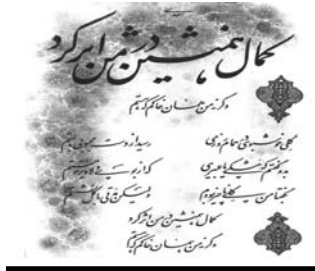 کمال همنشین در من اثر کرد
وگرنه من همان خاکم که هستم
گلی خوشبوی در حمام روزی
رسید از دست محبوبی به دستم
بدو گفتم که مشکی یا عبیری
که از بوی دلاویز تو مستم
بگفتا من گلی ناچیز بودم
ولیکن مدتی با گل نشستم
کمال همنشین در من اثر کرد
وگرنه من همان خاکم که هستم